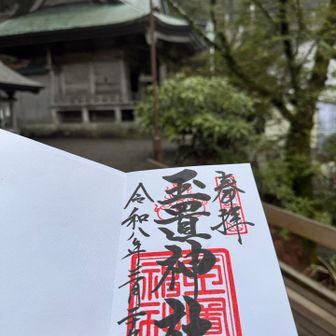 奉拝
玉置神社
令和八年二月二